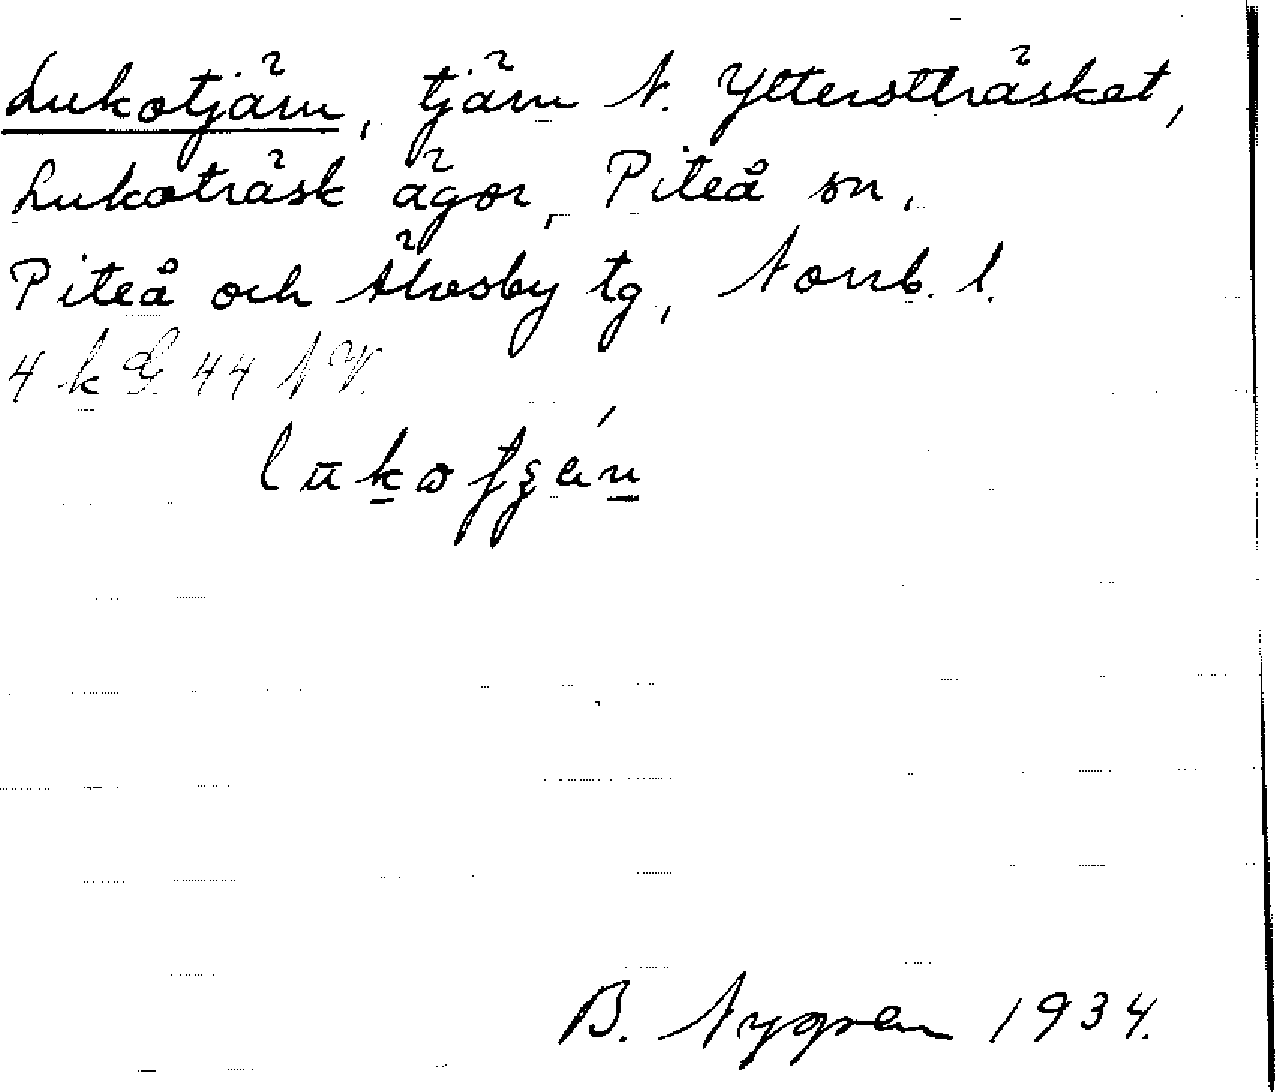 Lukotjärn, tjärn N. Ytterstträsket,
Lukoträsk ägor, Piteå sn,
Piteå och Älvsby tg, Norrb. l.
4 k G 44 NV.
B. Nygren 1934.